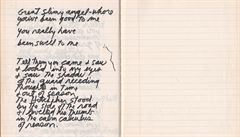 Great slimy angel-whore
you've been good to me
you really have
been sweet to me
Tell them you came & saw
& looked into my eyes
& saw the shadow
of the guard receding
Thoughts in Time
& out of season
The Hitchhiker stood
by the side of the road
& levelled his thumb
in the calm calculus
of reason.